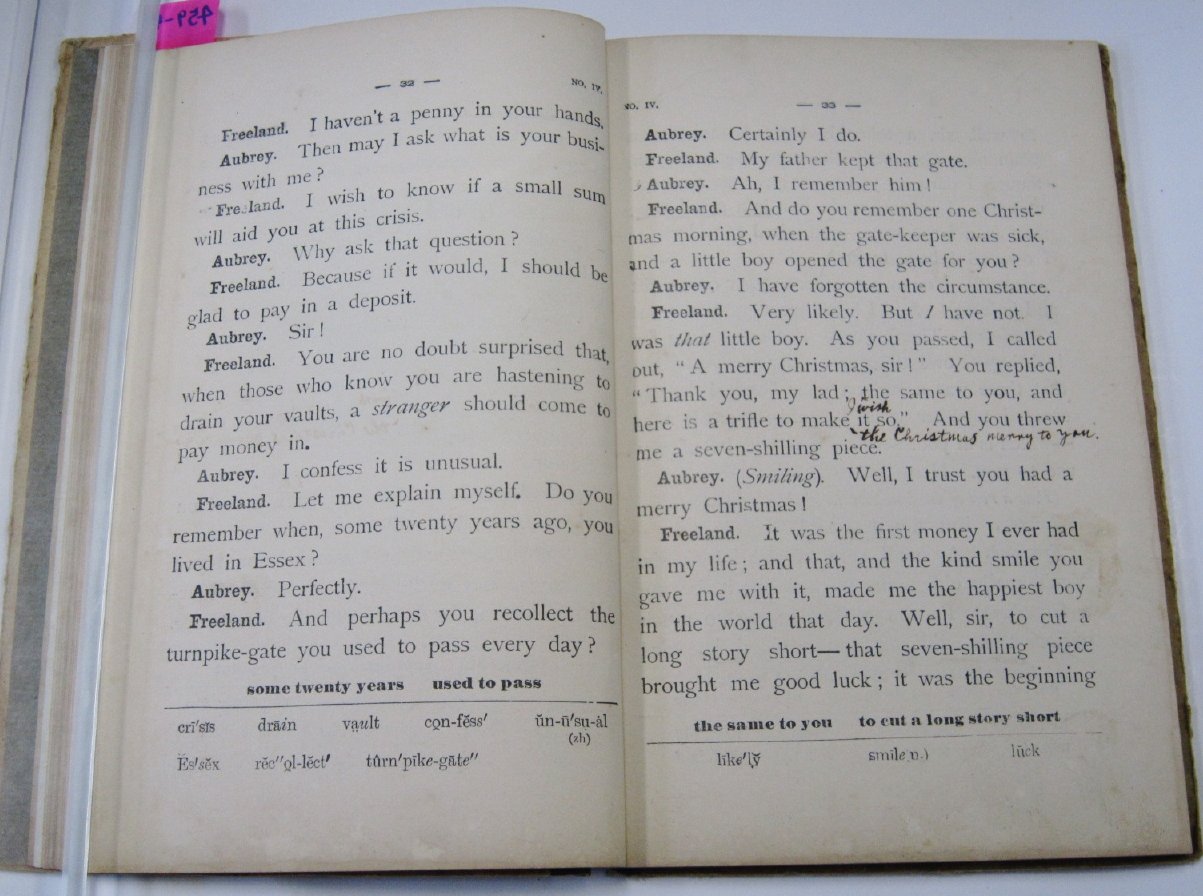 459-
— 32 —
NO. IV.
Freeland. I haven't a penny in your hands.
Aubrey. Then may I ask what is your busi-
ness with me?
Freeland. I wish to know if a small sum
will aid you at this crisis.
Aubrey. Why ask that question?
Freeland. Because if it would, I should be
glad to pay in a deposit.
Aubrey. Sir!
Freeland. You are no doubt surprised that,
when those who know you are hastening to
drain your vaults, a stranger should come to
pay money in.
Aubrey. I confess it is unusual.
Freeland. Let me explain myself. Do you
remember when, some twenty years ago, you
lived in Essex?
Aubrey. Perfectly.
Freeland. And perhaps you recollect the
turnpike-gate you used to pass every day?
some twenty years used to pass
crī'sĭs drāin vạult cọn-fĕss' ŭn-ū'su-ȧl
(zh)
Ĕs'sĕx rĕc''ọl-lĕct' tûrn'pīke-gāte''
NO. IV.
— 33 —
Aubrey. Certainly I do.
Freeland. My father kept that gate.
Aubrey. Ah, I remember him!
Freeland. And do you remember one Christ-
mas morning, when the gate-keeper was sick,
and a little boy opened the gate for you?
Aubrey. I have forgotten the circumstance.
Freeland. Very likely. But I have not. I
was that little boy. As you passed, I called
out, "A merry Christmas, sir!" You replied,
"Thank you, my lad; the same to you, and
I wish
here is a trifle to make it so." And you threw
the Christmas merry to you.
me a seven-shilling piece.
Aubrey. (Smiling). Well, I trust you had a
merry Christmas!
Freeland. It was the first money I ever had
in my life; and that, and the kind smile you
gave me with it, made me the happiest boy
in the world that day. Well, sir, to cut a
long story short—that seven-shilling piece
brought me good luck; it was the beginning
the same to you to cut a long story short
līke'lỹ smīle(n.) lŭck